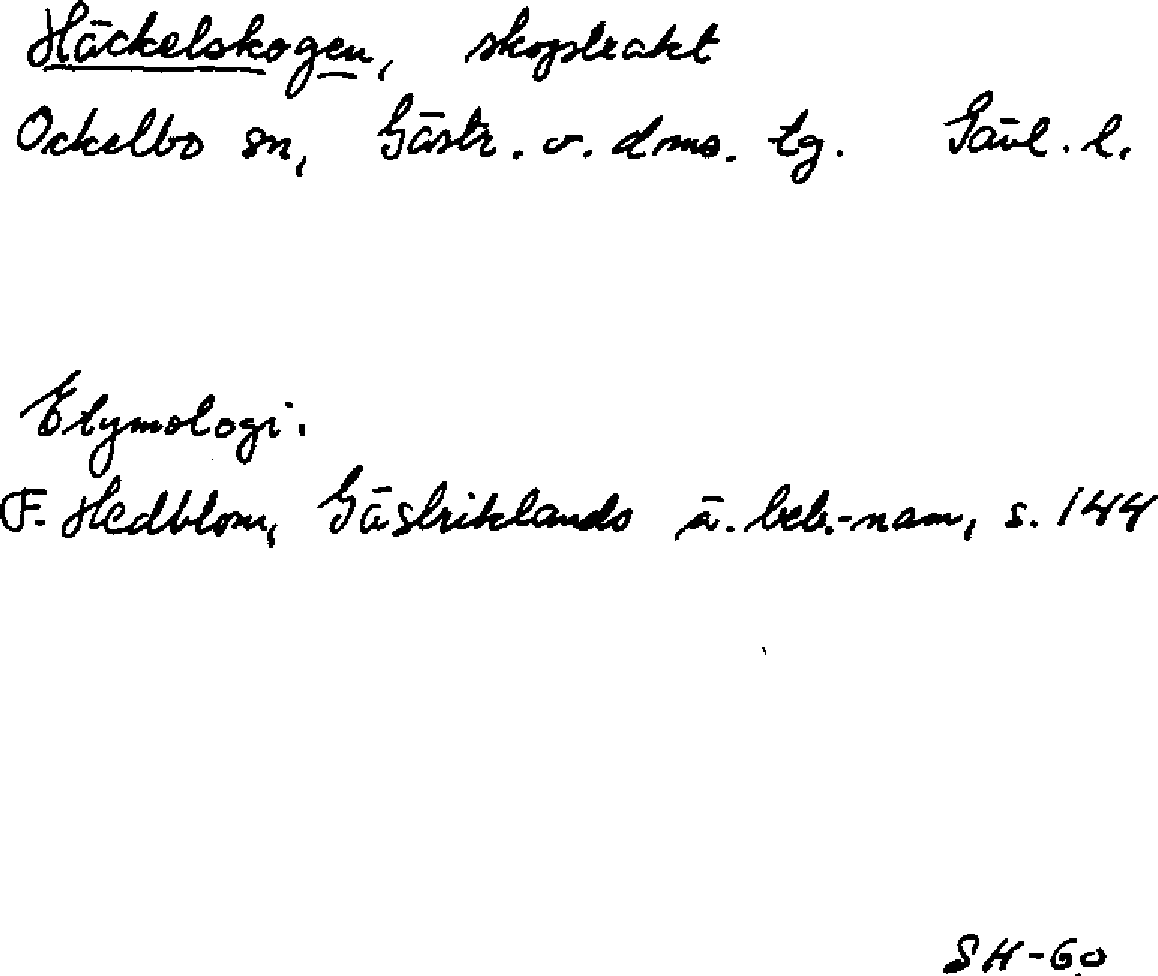 Häckelskogen, skogstrakt
Ockelbo sn, Gästr. v. dms. tg. Gävl. l.
Etymologi.
F. Hedblom, Gästriklands ä. beb.-namn, s. 144
SH-60